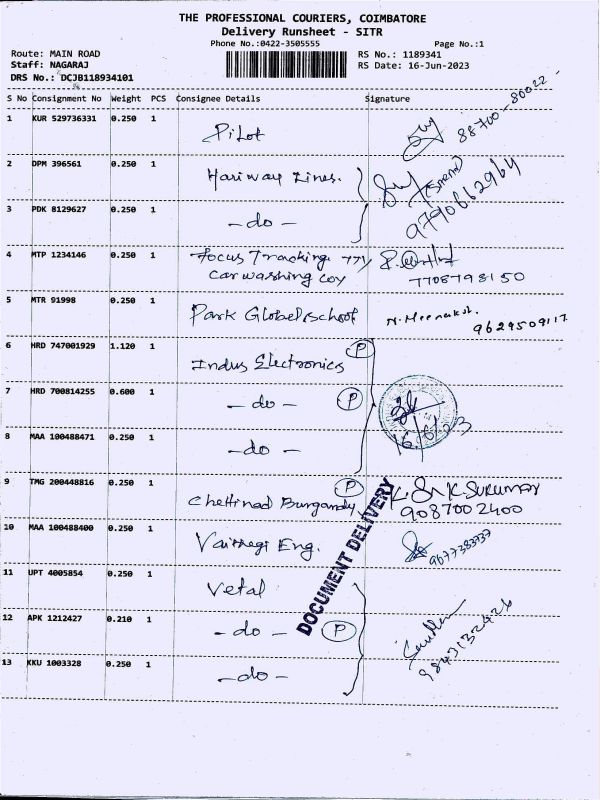 THE PROFESSIONAL COURIERS, COIMBATORE
Delivery Runsheet - SITR
Phone No.:0422-3505555 Page No.:1
Route: MAIN ROAD RS No.: 1189341
Staff: NAGARAJ RS Date: 16-Jun-2023
DRS No.: DCJB118934101
S No Consignment No Weight PCS Consignee Details Signature
1 KUR 529736331 0.250 1 Pilot 88700-80022
2 DPM 396561 0.250 1 Hariway Lines. 9790662964
3 PDK 8129627 0.250 1 - do -
4 MTP 1234146 0.250 1 Focus Tracking 771/
car washing coy 7708798150
5 MTR 91998 0.250 1 Park Global school 9629509117
6 HRD 747001929 1.120 1 Indus Electronics P
7 HRD 700814255 0.600 1 - do - P
16/6/23
8 MAA 100488471 0.250 1 - do -
9 TMG 200448816 0.250 1 Chettinad Burgandy P K. SUKUMAR
9087002400
DOCUMENT DELIVERY
10 MAA 100488400 0.250 1 Eng. 9677383737
11 UPT 4005854 0.250 1 Vetal
12 APK 1212427 0.210 1 - do - P 9843132426
13 KKU 1003328 0.250 1 - do -